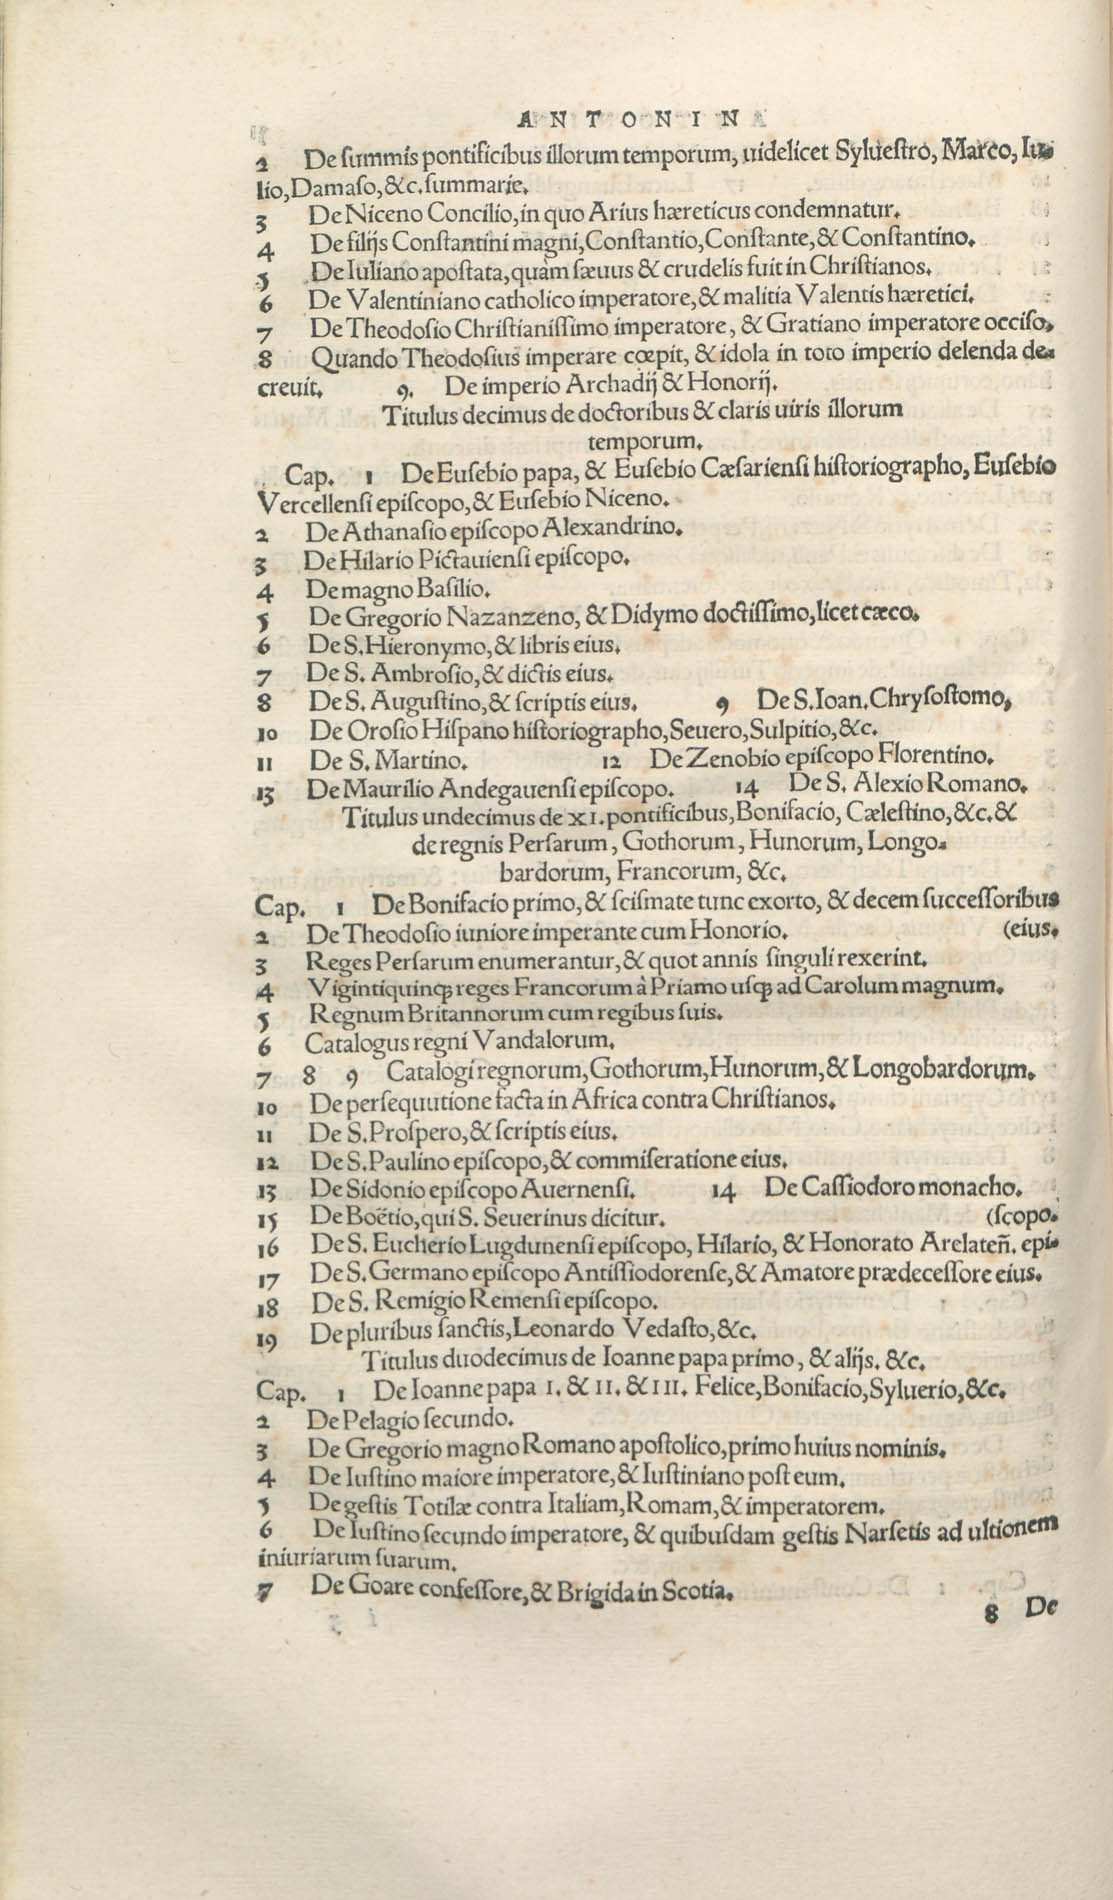 ANTONINA
2 De summis pontificibus illorum temporum, uidelicet Syluestro, Marco, Iu-
lio, Damaso, &c. summarie.
3 De Niceno Concilio, in quo Arius hæreticus condemnatur.
4 De filijs Constantini magni, Constantio, Constante, & Constantino.
5 De Iuliano apostata, quàm sæuus & crudelis fuit in Christianos.
6 De Valentiniano catholico imperatore, & malitia Valentis hæretici.
7 De Theodosio Christianissimo imperatore, & Gratiano imperatore occiso.
8 Quando Theodosius imperare cœpit, & idola in toto imperio delenda de-
creuit. 9. De imperio Archadij & Honorij.
Titulus decimus de doctoribus & claris uiris illorum
temporum.
Cap. 1 De Eusebio papa, & Eusebio Cæsariensi historiographo, Eusebio
Vercellensi episcopo, & Eusebio Niceno.
2 De Athanasio episcopo Alexandrino.
3 De Hilario Pictauiensi episcopo.
4 De magno Basilio.
5 De Gregorio Nazanzeno, & Didymo doctissimo, licet cæco.
6 De S. Hieronymo, & libris eius.
7 De S. Ambrosio, & dictis eius.
8 De S. Augustino, & scriptis eius. 9 De S. Ioan. Chrysostomo,
10 De Orosio Hispano historiographo, Seuero, Sulpitio, &c.
11 De S. Martino. 12 De Zenobio episcopo Florentino.
13 De Maurilio Andegauensi episcopo. 14 De S. Alexio Romano.
Titulus undecimus de XI. pontificibus, Bonifacio, Cælestino, &c. &
de regnis Persarum, Gothorum, Hunorum, Longo-
bardorum, Francorum, &c.
Cap. 1 De Bonifacio primo, & scismate tunc exorto, & decem successoribus
2 De Theodosio iuniore imperante cum Honorio. (eius.
3 Reges Persarum enumerantur, & quot annis singuli rexerint.
4 Vigintiquinqꝫ reges Francorum à Priamo usqꝫ ad Carolum magnum.
5 Regnum Britannorum cum regibus suis.
6 Catalogus regni Vandalorum.
7 8 9 Catalogi regnorum, Gothorum, Hunorum, & Longobardorum.
10 De persequutione facta in Africa contra Christianos.
11 De S. Prospero, & scriptis eius.
12 De S. Paulino episcopo, & commiseratione eius.
13 De Sidonio episcopo Auernensi. 14 De Cassiodoro monacho.
15 De Boëtio, qui S. Seuerinus dicitur. (scopo.
16 De S. Eucherio Lugdunensi episcopo, Hilario, & Honorato Arelateñ. epi-
17 De S. Germano episcopo Antissiodorense, & Amatore prædecessore eius.
18 De S. Remigio Remensi episcopo.
19 De pluribus sanctis, Leonardo Vedasto, &c.
Titulus duodecimus de Ioanne papa primo, & alijs. &c.
Cap. 1 De Ioanne papa I. & II. & III. Felice, Bonifacio, Syluerio, &c.
2 De Pelagio secundo.
3 De Gregorio magno Romano apostolico, primo huius nominis.
4 De Iustino maiore imperatore, & Iustiniano post eum.
5 De gestis Totilæ contra Italiam, Romam, & imperatorem.
6 De Iustino secundo imperatore, & quibusdam gestis Narsetis ad ultionem
iniuriarum suarum.
7 De Goare confessore, & Brigida in Scotia.
8 De